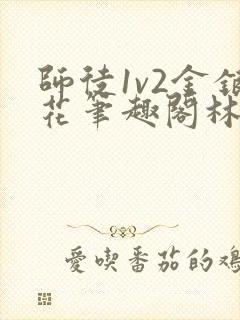 師徒1v2金銀
花筆趣閣林
愛喫番茄的雞